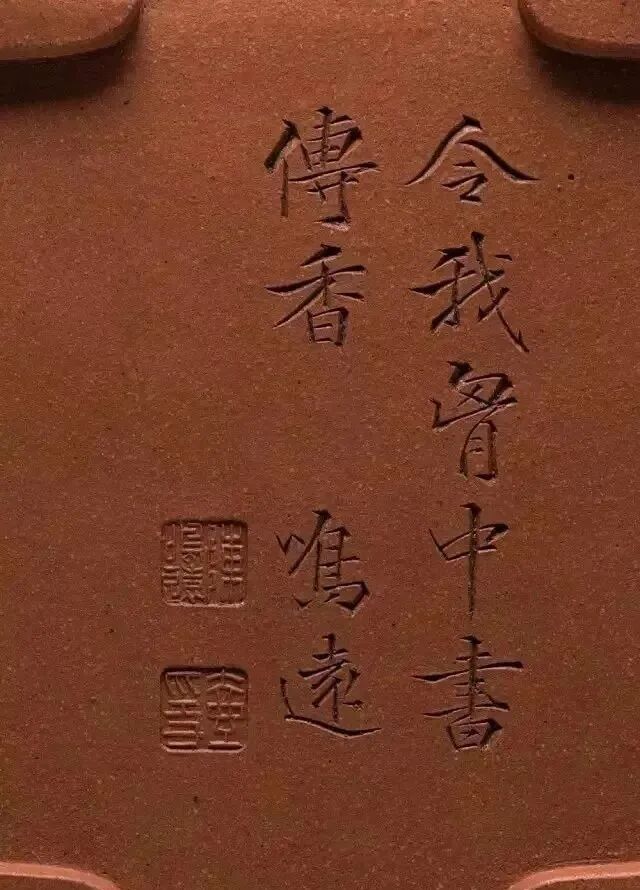 令我胷中書
傳香 鳴遠